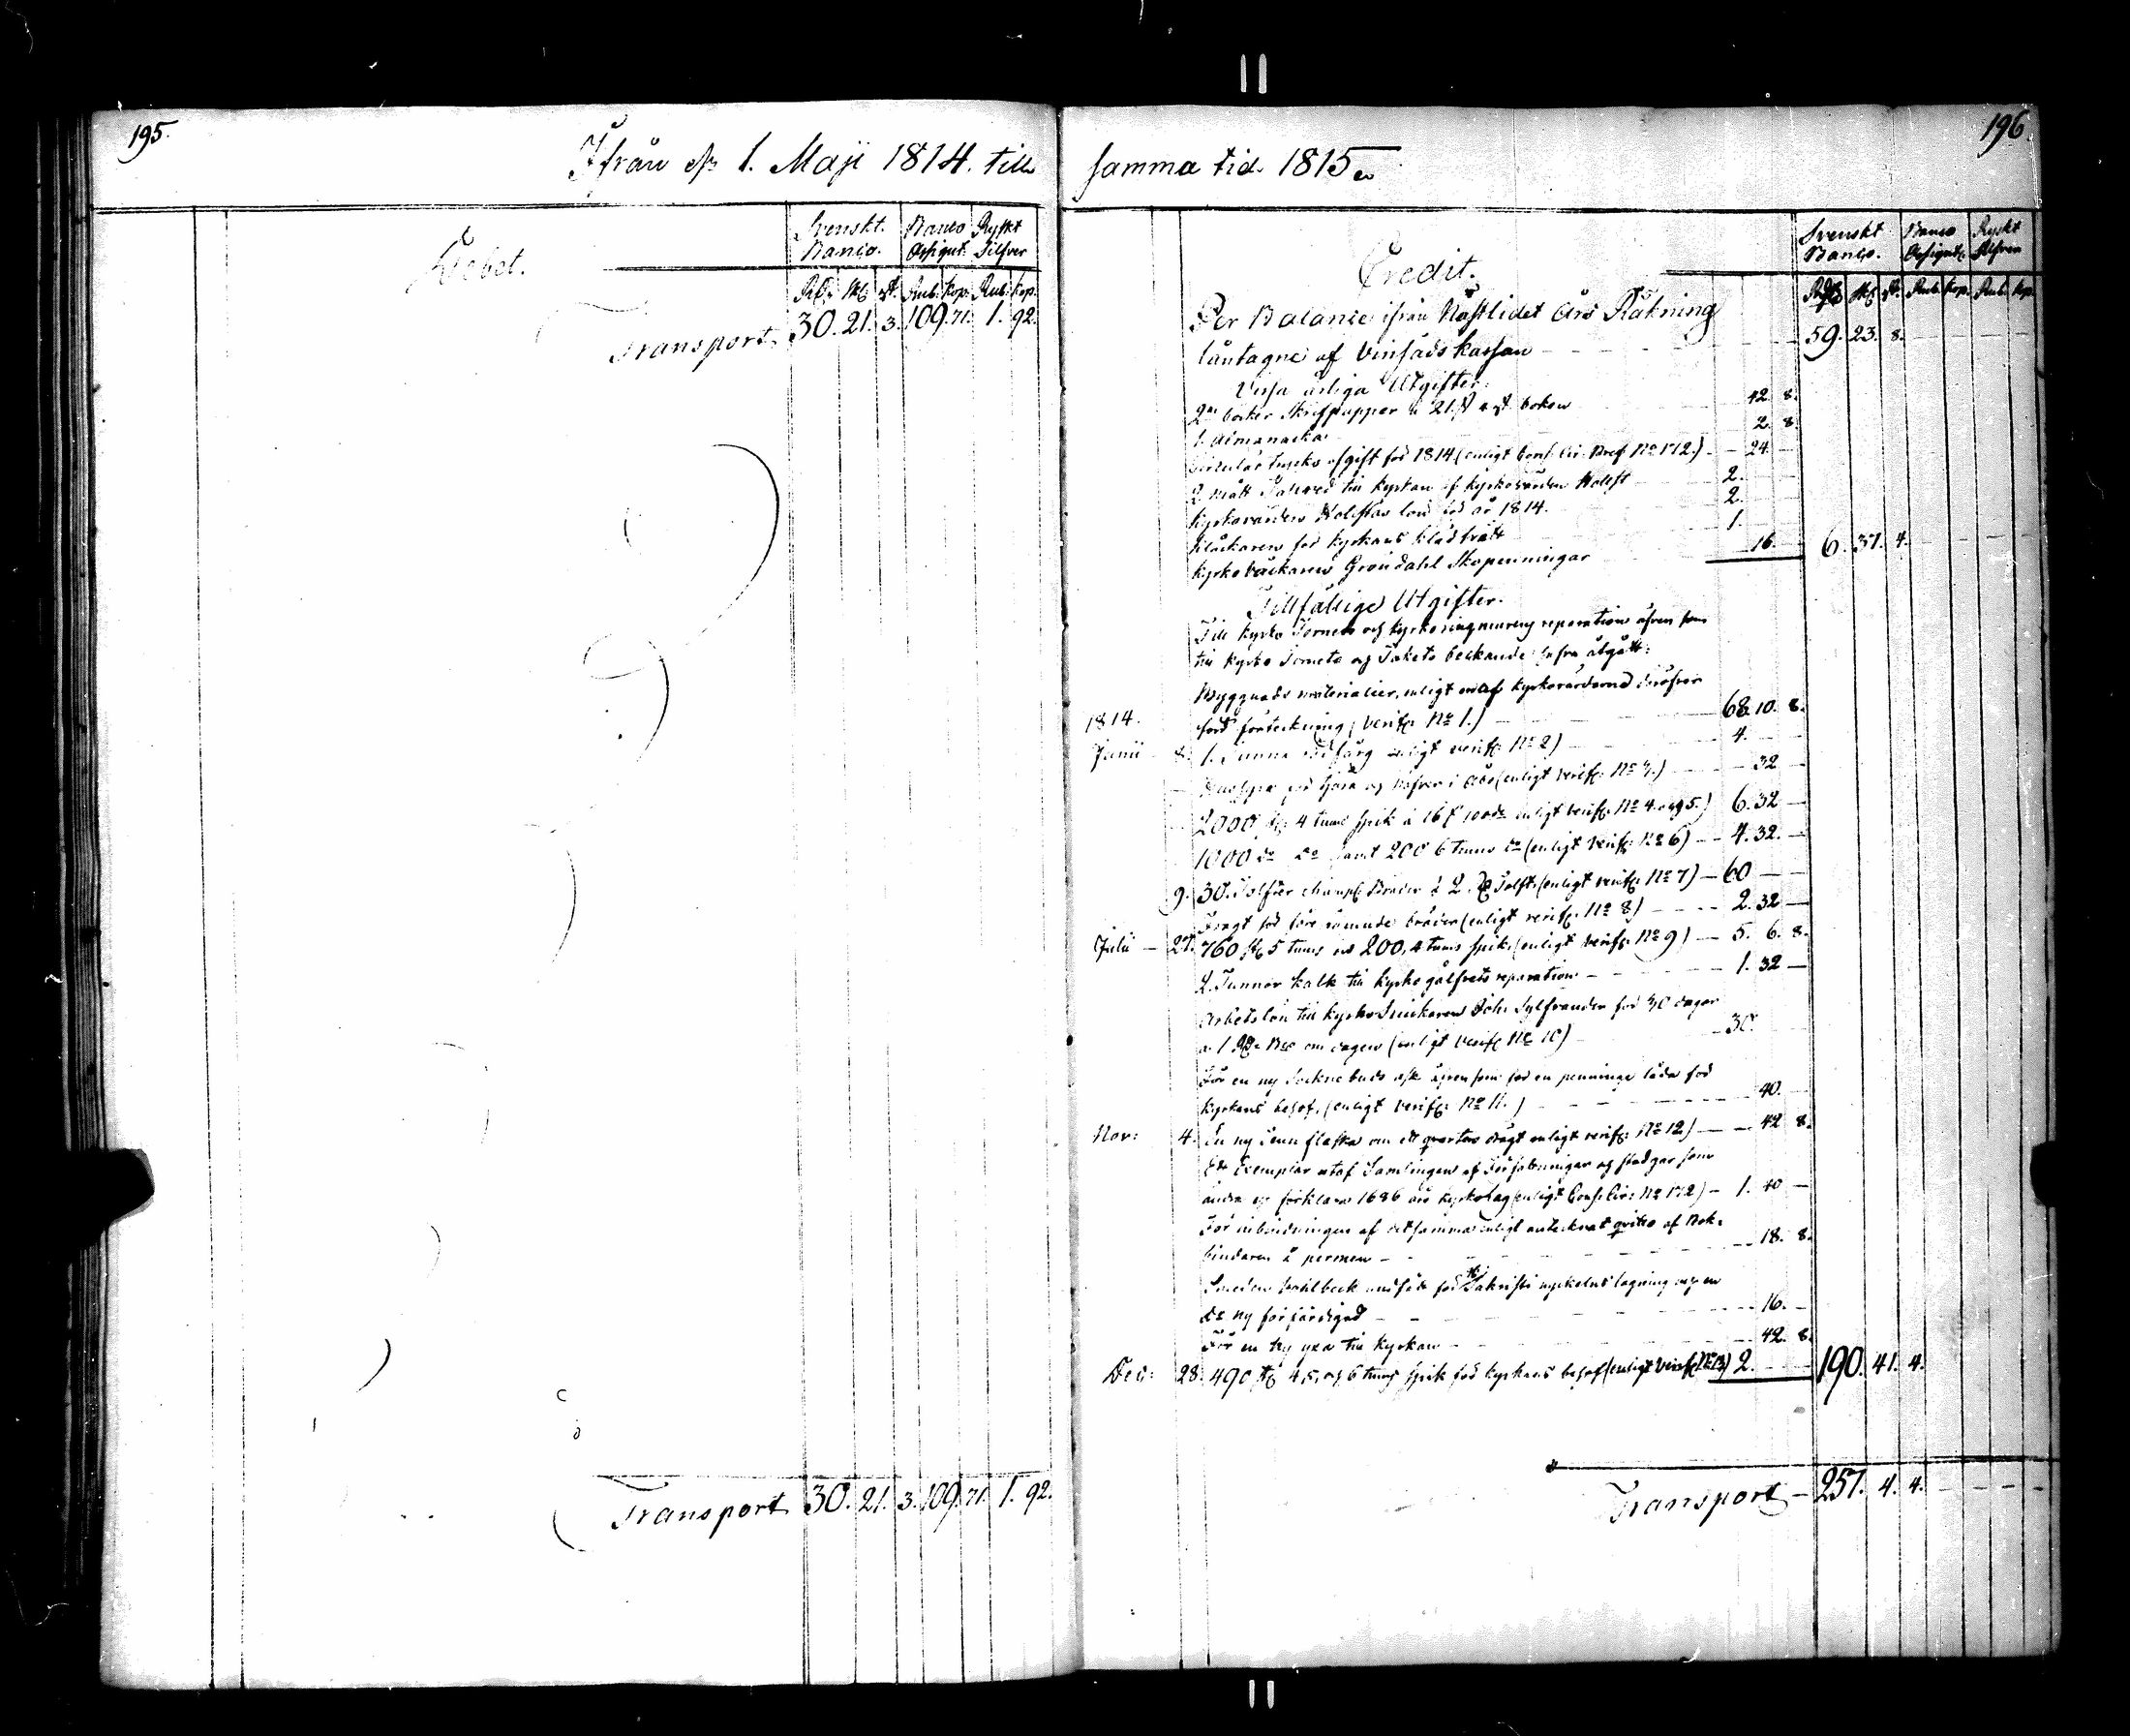 195.
Ifrån d. 1. Maji 1814. till
Debet.
Svenskt Banco.
Banco Assignt.
Ryskt Silfver
Rd. sk. rst. Rub. kop. Rub. kop.
Transport 30. 21. 3. 109. 71. 1. 92.
Transport 30. 21. 3. 109. 71. 1. 92.
196.
samma tid 1815
Credit.
Svenskt Banco.
Banco Assignt.
Ryskt Silfver
sk. rst. Rub. kop. Rub. kop.
Per Balance ifrån Nästlidet års Räkning
låntagne af Vinsäds kassan 59. 23. 8.
Vissa årliga Utgifter.
2ne böcker Skrifpapper à 21 4 boken 42. 8.
1. Almanacka 2. 8.
trycks afgift för 1814 (enligt Cons. Cir. Bref No 172.) 24.
2. till kyrkan af kyrkovärden 2.
Kyrkovärden lön för år 1814. 2.
Klåckaren för kyrkans klädtvätt 1.
Kyrkoväcktaren Gröndahl Skopenningar 16. 6. 37. 4.
Tillfällige Utgifter.
Till kyrko Tornets och kyrkoringmurens reparation äfven som
till kyrko Tornets och Takets beckande hafva åtgått:
Byggnads materialier, enligt en af kyrkovärdarne deröfver
1814. förd förteckning (verif: No 1.) 68. 10. 8.
Junii 8. 1. Tunna färg enligt verif: No 2) 4.
för tjära och i Åbo (enligt verif: No 3.) 32
2000 st: 4 tums spik à 16 enligt verif: No 4. och 5.) 6. 32
1000 do do samt 200 6 tums do (enligt verif: No 6) 4. 32.
9. 30. Tolfter Bräder à 2. Rd Tolft. (enligt verif: No 7) 60
Fragt för före nämnde bräder (enligt verif: No 8) 2. 32
Julii 27. 760 st 5 tums och 200, 4 tums spik (enligt verif: No 9) 5. 6. 8.
2. Tunnor kalk till kyrko gålfvets reparation 1. 32
Arbetslön till kyrko Snickaren Joh. Sylfvander för 30 dagar
à 1 Rd. Bco om dagen (enligt verif: No 10) 30.
För en ny Sockne buds ask äfven som för en penninge låda för
kyrkans behof. (enligt verif: No 11.) 40.
Nov: 4. En ny Tenn flaska om ett qvarters drägt enligt verif: No 12) 42. 8.
Ett Exemplar utaf Samlingen af Författningar och stadgar som
ändra och förklara 1686 års kyrkolag (enligt Cons. Cir: No 172) 1. 40
För inbindningen af detsamma enligt antecknat qvitto af Bok-
bindaren å permen 18. 8.
Smeden för Sakristi nyckelns lagning och en
do ny förfärdigad 16.
För en ny yxa till kyrkan 42. 8.
Dec: 28. 490 st 4, 5, och 6 tums spik för kyrkans behof (enligt verif: No 13) 2. 190. 41. 4.
Transport 257. 4. 4.